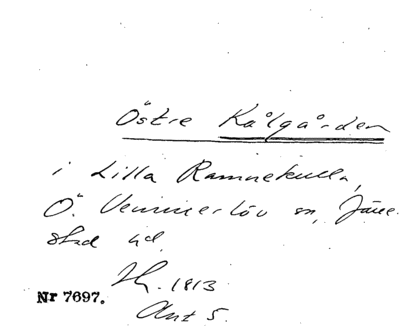 Östre Kålgården
i Lilla Ramnekulla,
Ö. Vemmerlöv sn, Järre-
stad hd.
Sk. 1813
Akt 5.
Nr 7697.